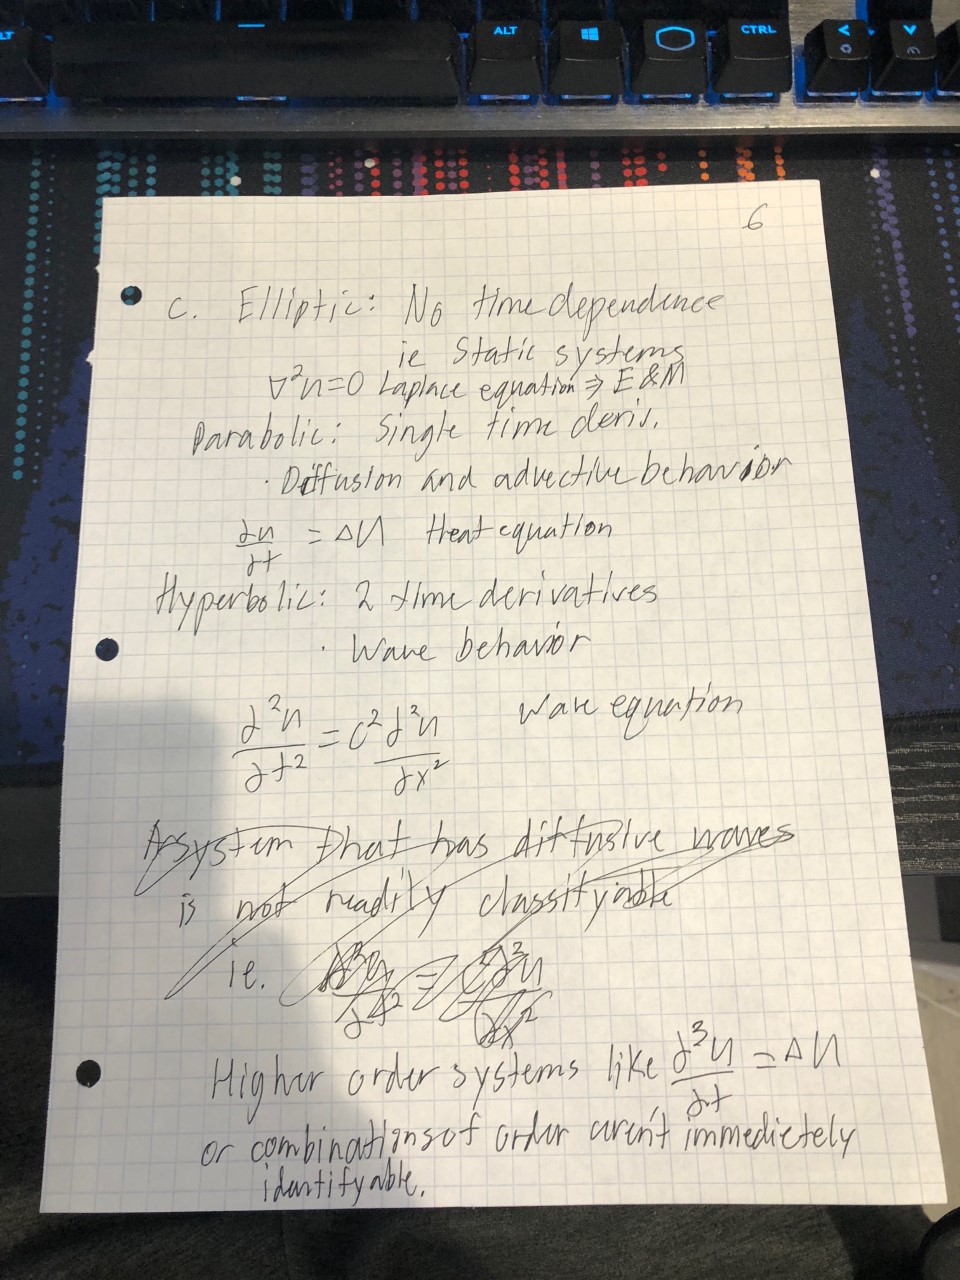 ALT
CTRL
6
c. Elliptic: No time dependence
ie Static systems
∇²u=0 Laplace equation ⇒ E&M
Parabolic: Single time deriv.
· Diffusion and advective behavior
∂u/∂t = ΔU Heat equation
Hyperbolic: 2 time derivatives
· Wave behavior
∂²u/∂t² = c² ∂²u/∂x² Wave equation
A system that has diffusive waves
is not readily classifyable
ie.
Higher order systems like ∂³u/∂t = ΔU
or combinations of order aren't immedietely
identifyable.